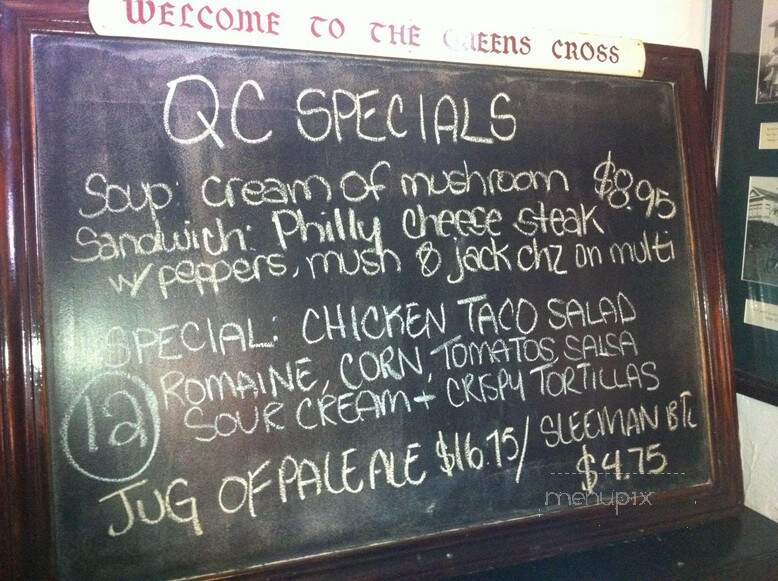 WELCOME TO THE UEENS CROSS
QC SPECIALS
Soup: cream of mushroom $8.95
Sandwich: Philly cheese steak
w/ peppers, mush & jack chz on multi
SPECIAL: CHICKEN TACO SALAD
12 ROMAINE, CORN, TOMATOS, SALSA
SOUR CREAM + CRISPY TORTILLAS
JUG OF PALE ALE $16.75/ SLEEMAN BTL
$4.75
menupix